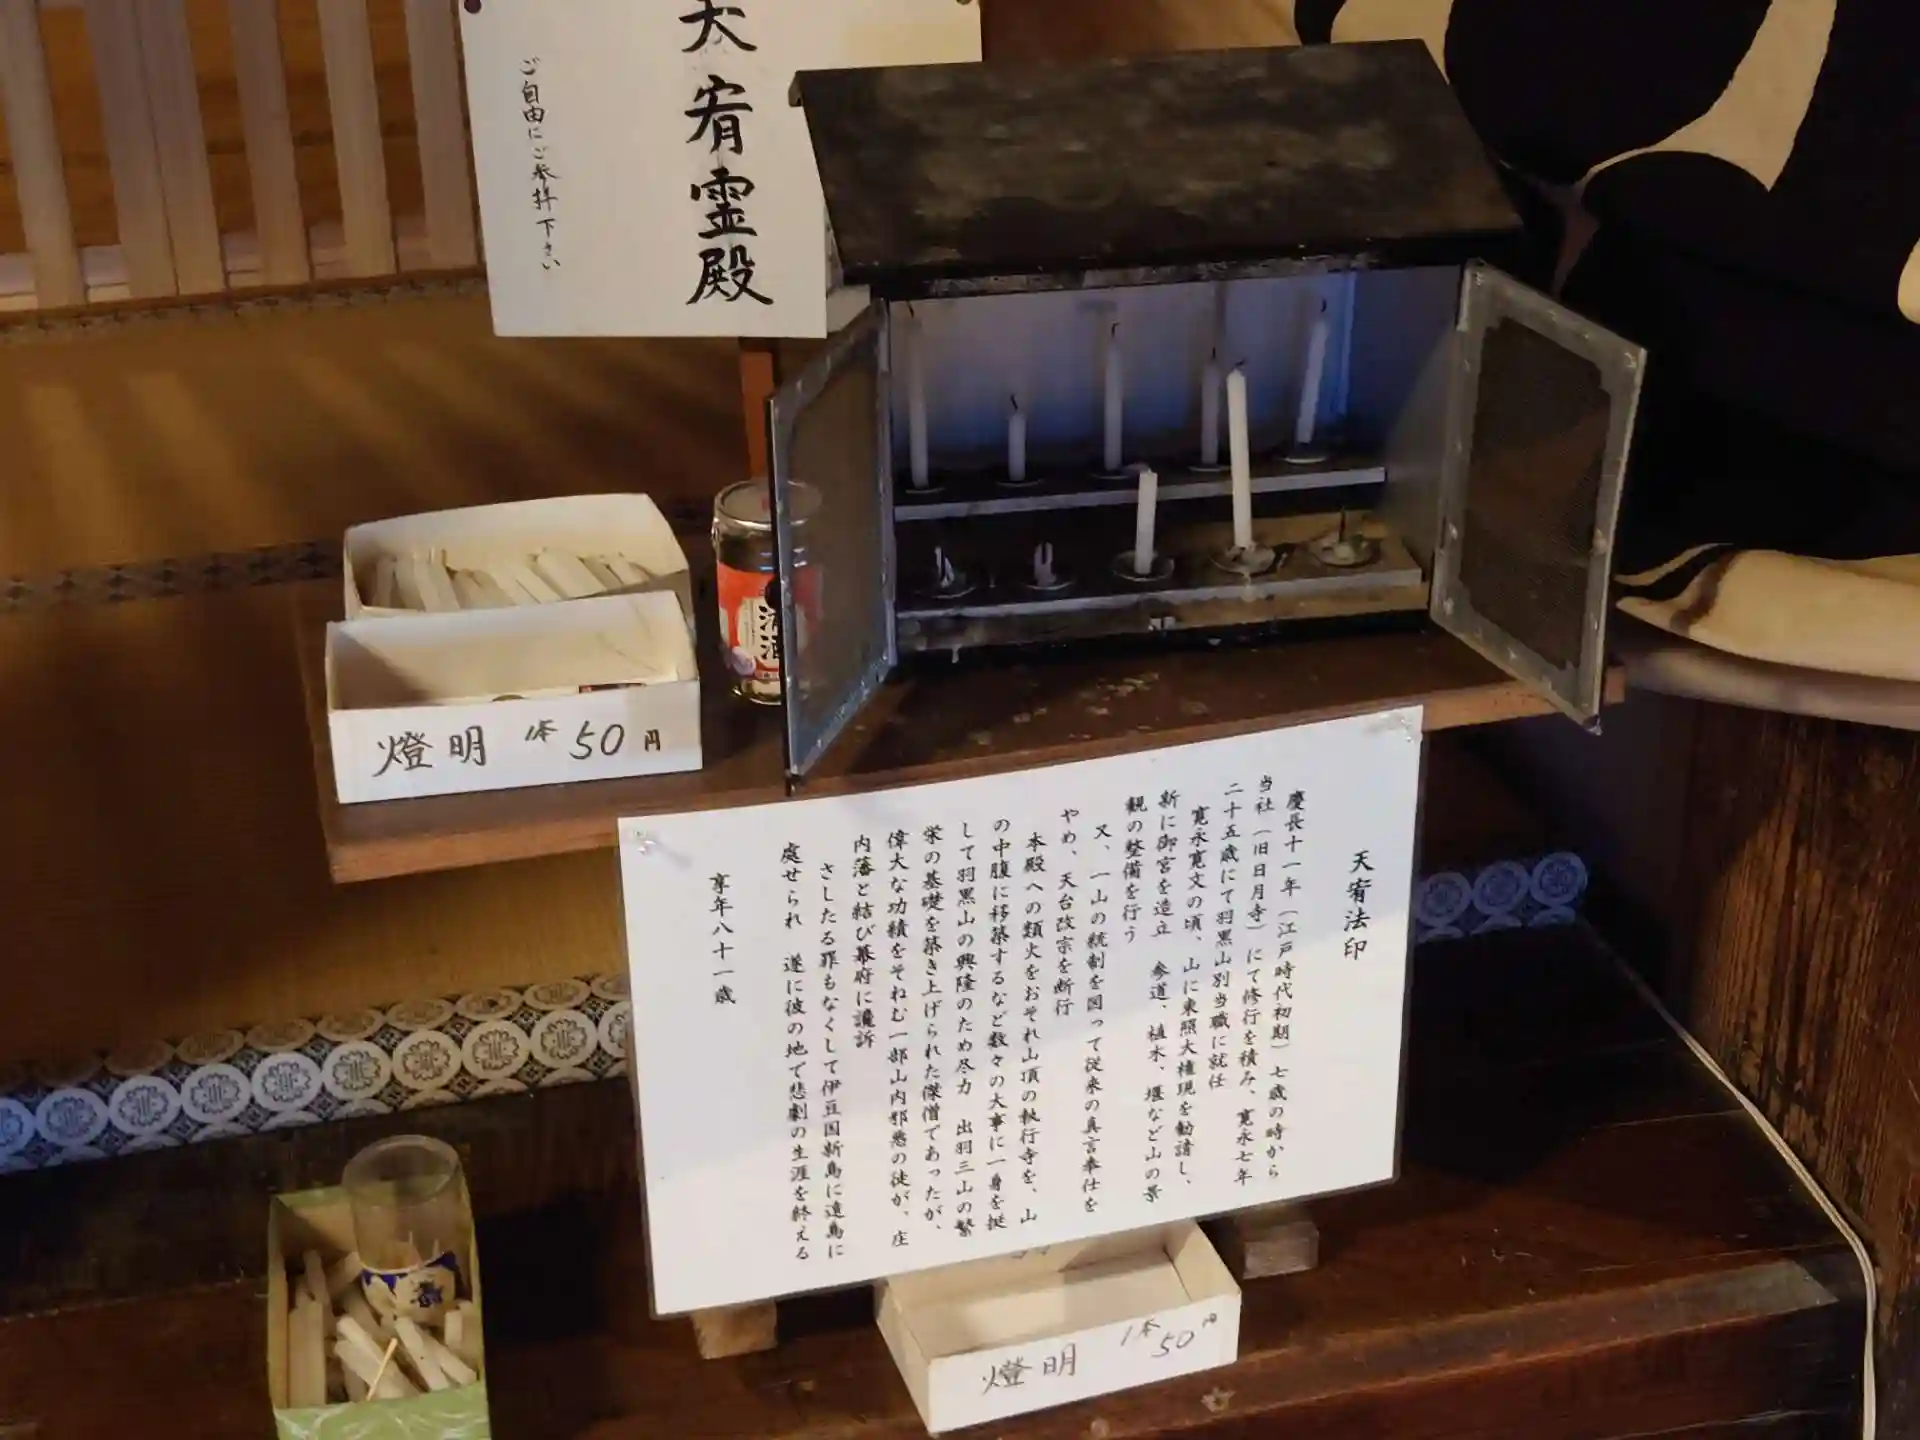 天宥霊殿
ご自由にご参拝下さい
清酒
燈明 1本 50円
天宥法印
慶長十一年（江戸時代初期）七歳の時から
当社（旧日月寺）にて修行を積み、寛永七年
二十五歳にて羽黒山別当職に就任
寛永寛文の頃、山に東照大権現を勧請し、
新に御宮を造立 参道、植木、堰など山の景
観の整備を行う
又、一山の統制を図って従来の真言奉仕を
やめ、天台改宗を断行
本殿への類火をおそれ山頂の執行寺を、山
の中腹に移築するなど数々の大事に一身を挺
して羽黒山の興隆のため尽力 出羽三山の繁
栄の基礎を築き上げられた傑僧であったが、
偉大な功績をそねむ一部山内邪悪の徒が、庄
内藩と結び幕府に讒訴
さしたる罪もなくして伊豆国新島に遠島に
處せられ 遂に彼の地で悲劇の生涯を終える
享年八十一歳
燈明 1本 50円